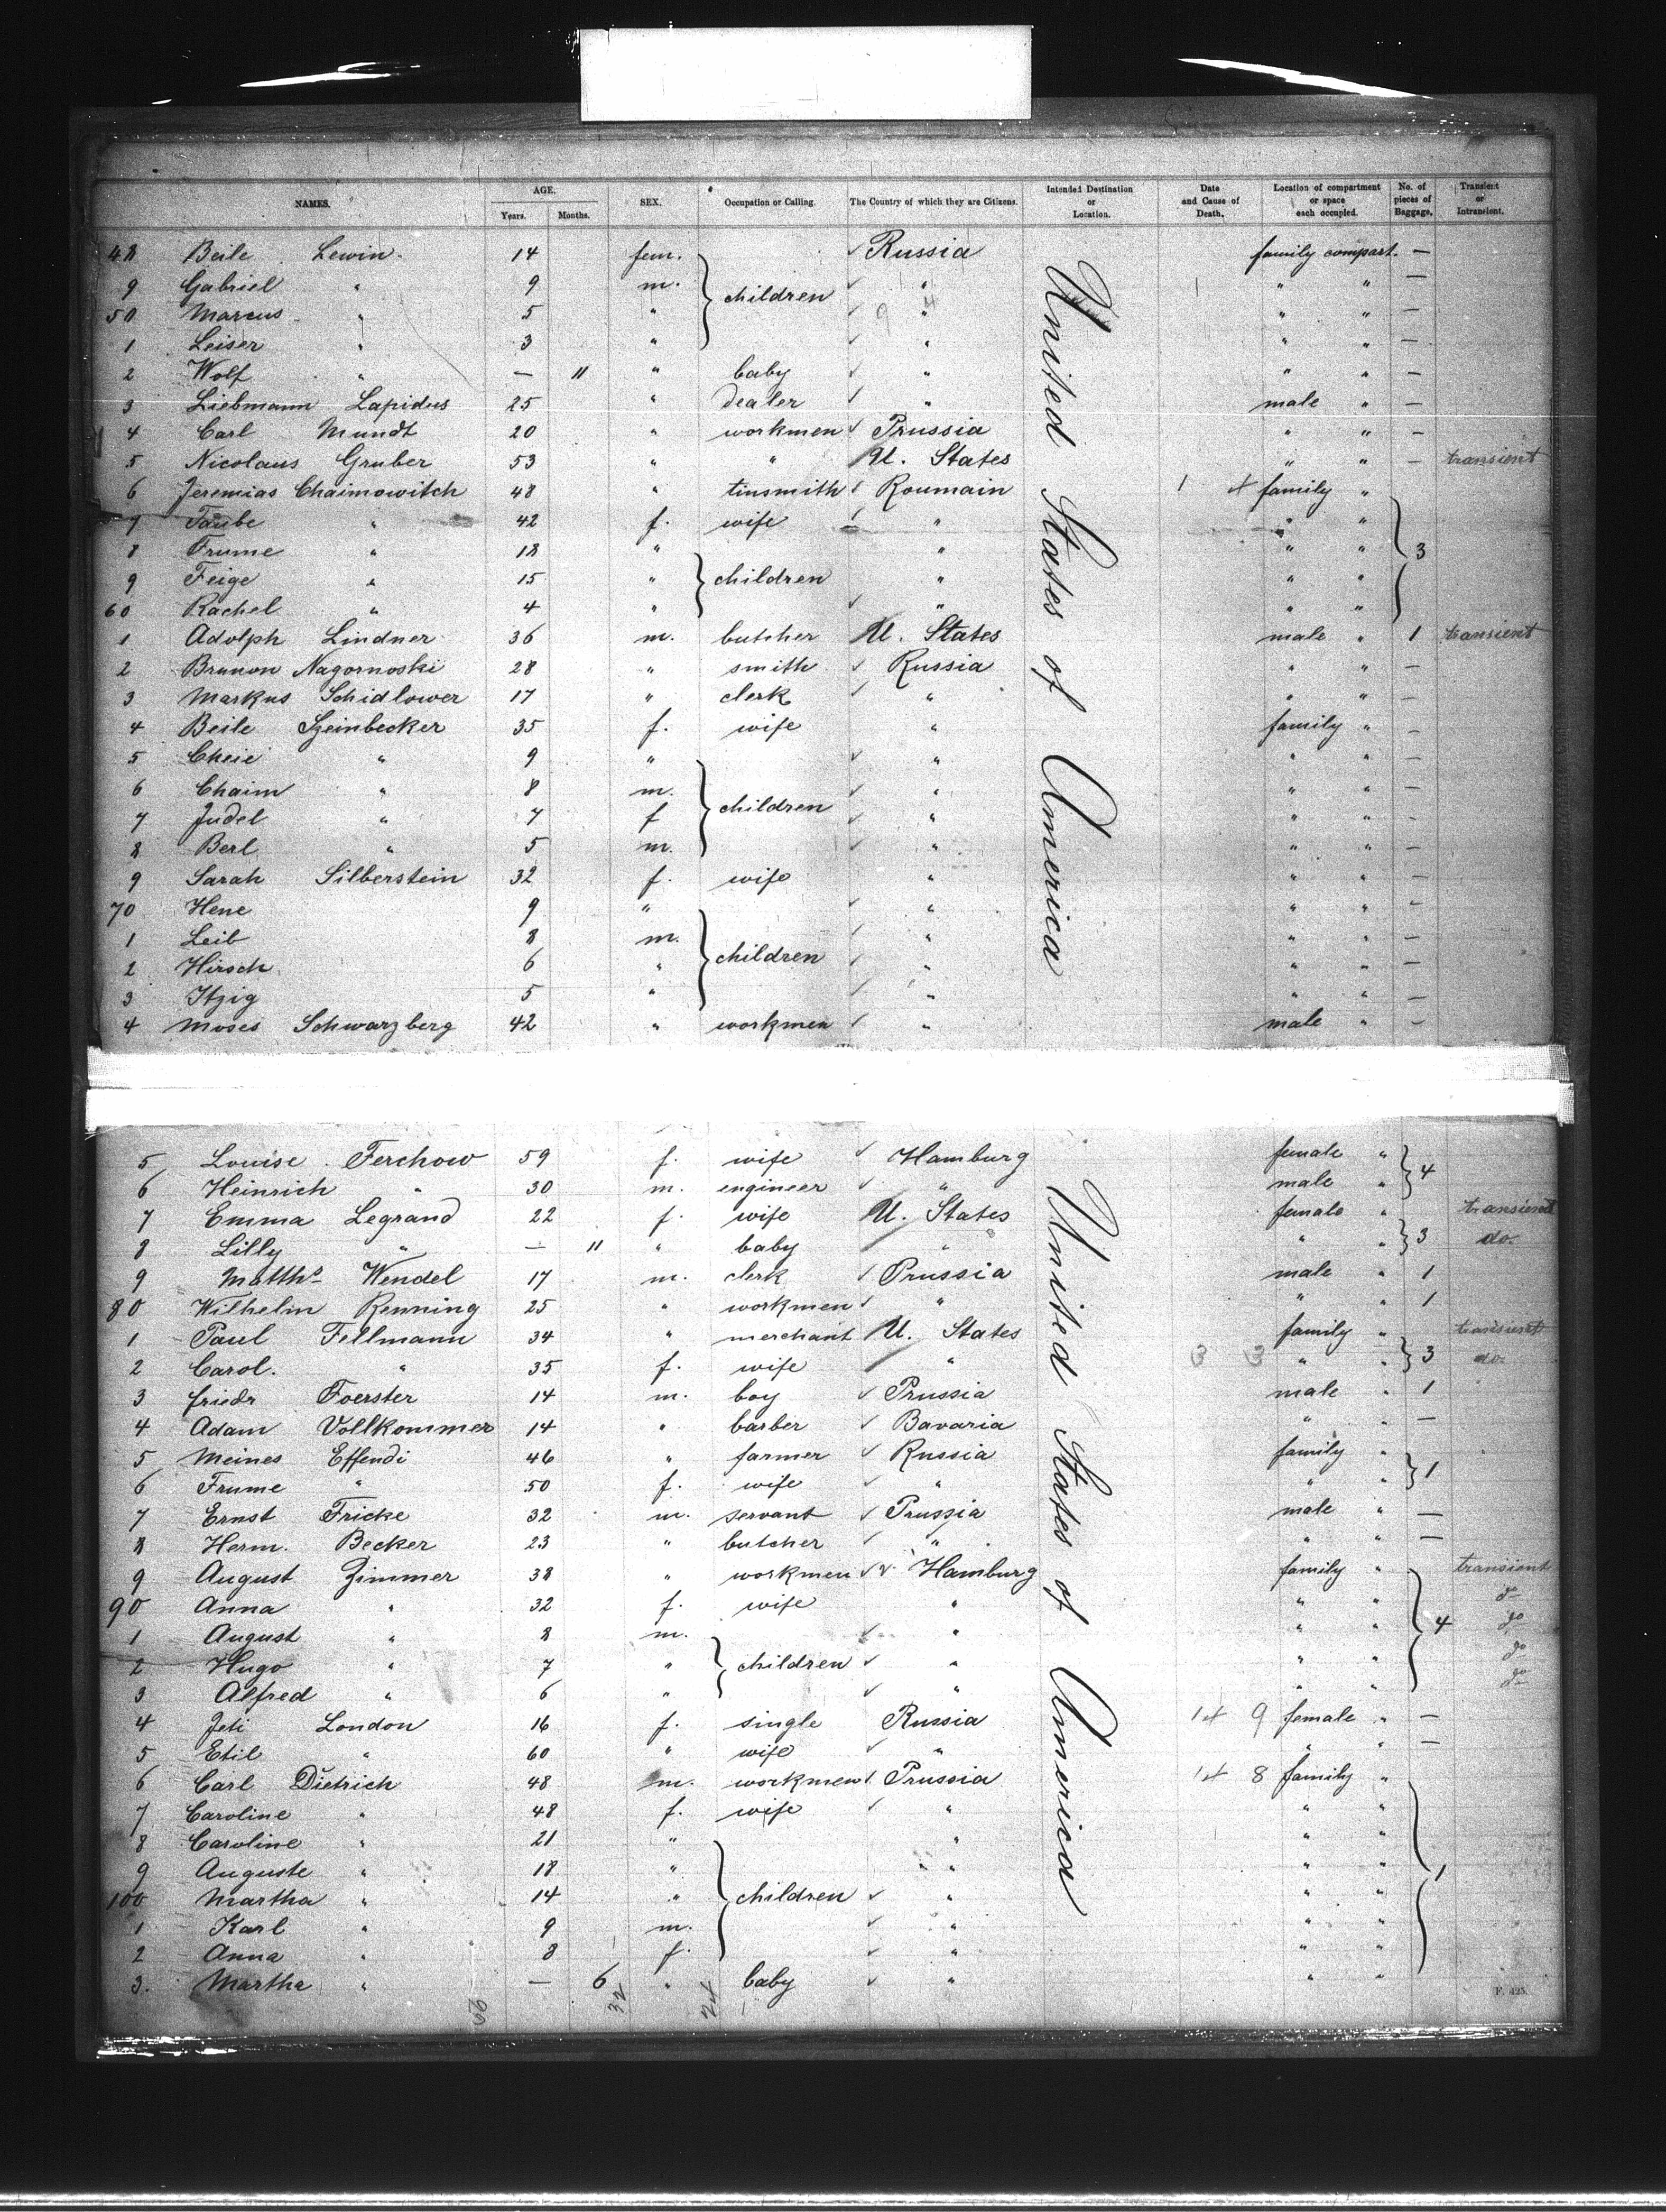 NAMES. AGE. Years. Months. SEX. Occupation or Calling. The Country of which they are Citizens. Intended Destination or Location. Date and Cause of Death. Location of compartment or space each occupied. No. of pieces of Baggage. Transient or Intransient.
48 Beile Lewin. 14 fem. Russia family compart. —
9 Gabriel " 9 m. children " " " —
50 Marcus " 5 " " " " —
1 Leiser " 3 " " " " —
2 Wolf " — 11 " baby " " " —
3 Liebmann Lapidus 25 " dealer " male " —
4 Carl Mundt 20 " workmen Prussia " " —
5 Nicolaus Gruber 53 " " U. States " " — transient
6 Jeremias Chaimowitch 48 " tinsmith Roumain family "
7 Taube " 42 f. wife " " "
8 Frume " 18 " " " " 3
9 Feige " 15 " children " " "
60 Rachel " 4 " " " "
1 Adolph Lindner 36 m. butcher U. States male " 1 transient
2 Brunon Nagornoski 28 " smith Russia " " —
3 Markus Schidlower 17 " clerk " " " —
4 Beile Szeinbecker 35 f. wife " family " —
5 Cheie " 9 " " " " —
6 Chaim " 8 m. " " " —
7 Judel " 7 f children " " " -
8 Berl " 5 m. " " " —
9 Sarah Silberstein 32 f. wife " " " —
70 Hene 9 " " " " -
1 Leib 8 m. " " " —
2 Hirsch 6 " children " " " —
3 Itzig 5 " " " " —
4 Moses Schwarzberg 42 " workmen " male " —
United States of America
5 Louise Ferchow 59 f. wife Hamburg female "
6 Heinrich " 30 m. engineer " male " 4
7 Emma Legrand 22 f. wife U. States female " transient
8 Lilly " — 11 " baby " " " 3 do.
9 Matths Wendel 17 m. clerk Prussia male " 1
80 Wilhelm Renning 25 " workmen " " 1
1 Paul Fellmann 34 " merchant U. States family " transient
2 Carol. " 35 f. wife " " " 3 do.
3 Friedr Foerster 14 m. boy Prussia male " 1
4 Adam Vollkommer 14 " barber Bavaria " " —
5 Meines Effendi 46 " farmer Russia family "
6 Frume " 50 f. wife " " " 1
7 Ernst Fricke 32 m. servant Prussia male " —
8 Herm. Becker 23 " butcher " " " —
9 August Zimmer 38 " workmen Hamburg family " transient
90 Anna " 32 f. wife " " " do
1 August " 8 m. " " " 4 do
2 Hugo " 7 " children " " " do
3 Alfred " 6 " " " " do
4 Jeti London 16 f. single Russia 9 female " —
5 Etil " 60 " wife " " " —
6 Carl Dietrich 48 m. workmen Prussia 8 family "
7 Caroline " 48 f. wife " " "
8 Caroline " 21 " " " "
9 Auguste " 18 " " " " 1
100 Martha " 14 " children " " "
1 Karl " 9 m. " " "
2 Anna " 8 f. " " "
3. Martha " — 6 " baby " " "
United States of America
56 32 24
F. 425.